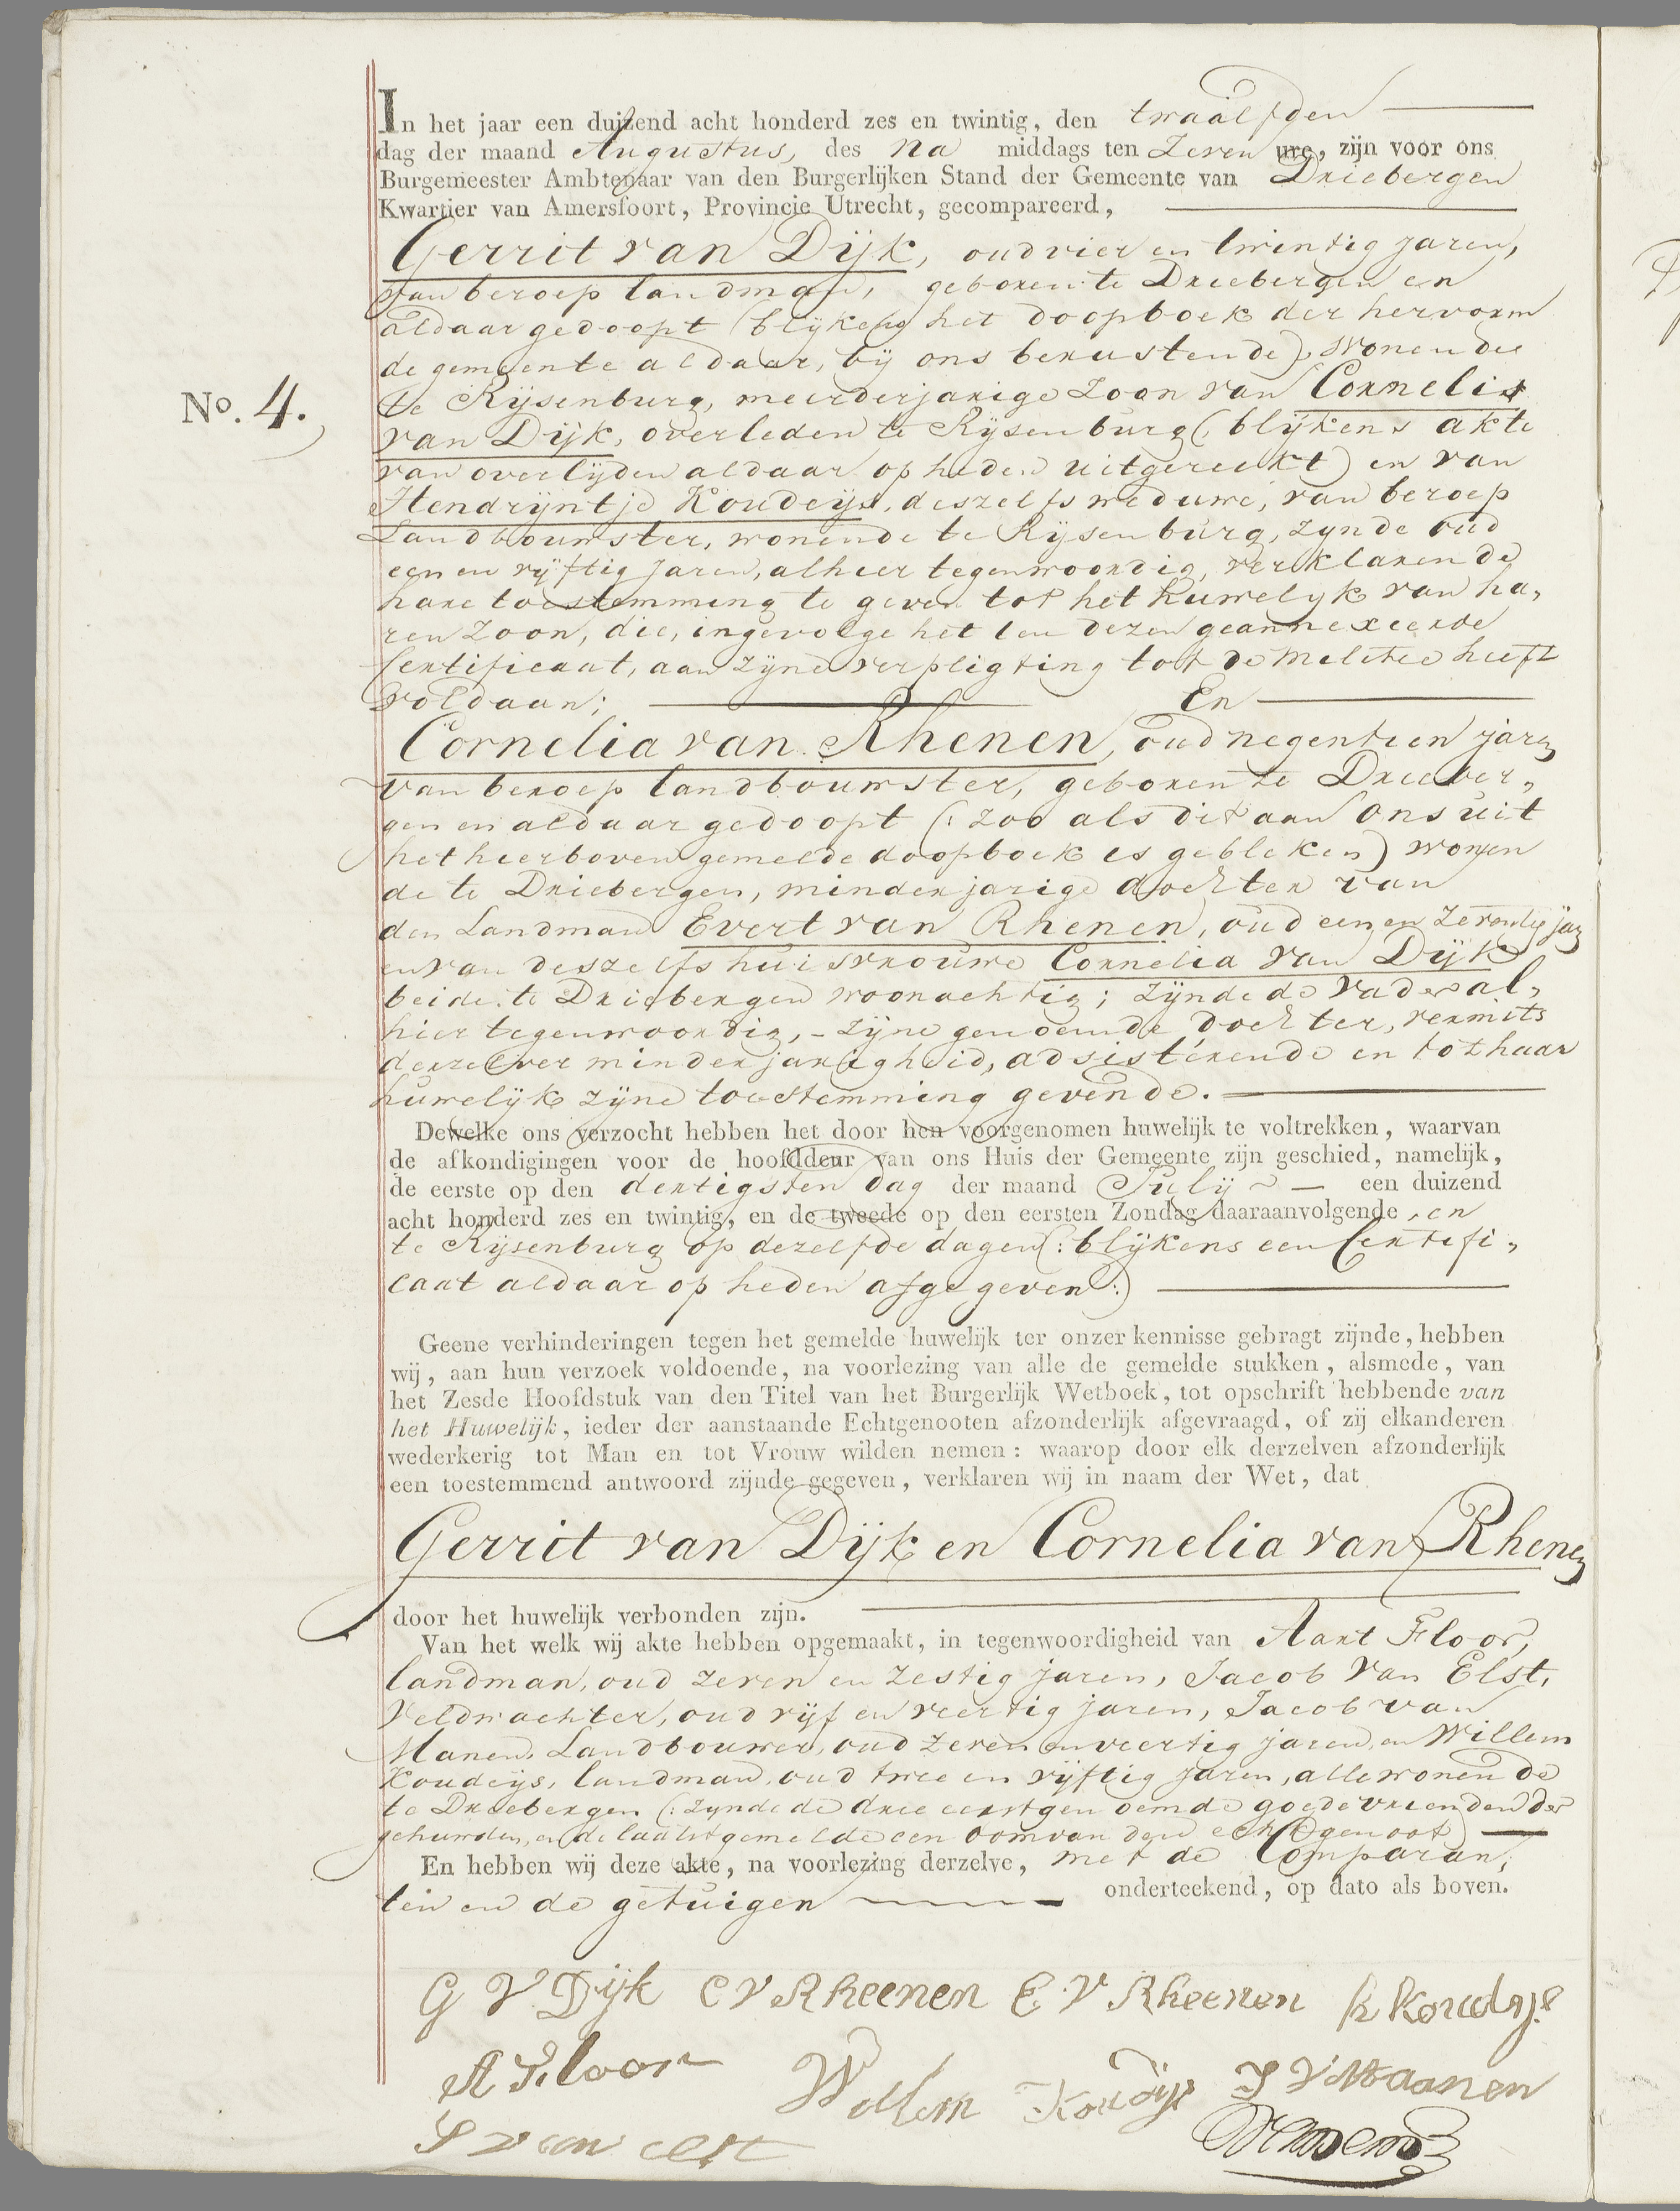 In het jaar een duizend acht honderd zes en twintig, den twaalfden
dag der maand Augustus, des na middags ten zeven ure, zijn voor ons
Burgemeester Ambtenaar van den Burgerlijken Stand der Gemeente van Driebergen
Kwartier van Amersfoort, Provincie Utrecht, gecompareerd,
Gerrit van Dijk, oud vier en twintig jaren,
van beroep landman, geboren te Driebergen en
aldaar gedoopt (blykens het doopboek der hervorm
de gemeente aldaar, bij ons berustende), wonende
No. 4.
te Rijsenburg, meerderjarige zoon van Cornelis
van Dijk, overleden te Rijsenburg (: blijkens akte
van overlijden aldaar op heden uitgereikt) en van
Hendrijntje Koudeijs, deszelfs weduwe, van beroep
Landbouwster, wonende te Rijsenburg, zynde oud
een en vijftig jaren, alhier tegenwoordig, verklarende
hare toestemming te geven tot het huwelyk van ha,
ren zoon, die, ingevolge het ten dezen geannexeerde
Certificaat, aan zijne verpligting tot de Melitie heeft
voldaan; En
Cornelia van Rhenen, oud negentien jaren
van beroep landbouwster, geboren te Drieber,
gen en aldaar gedoopt (: zoo als dit aan ons uit
het hierboven gemelde doopboek is gebleken) wonen
de te Driebergen, minderjarige dochter van
den Landman Evert van Rhenen, oud een en zeventig jaren
en van deszelfs huisvrouwe Cornelia van Dijk
beide te Driebergen woonachtig; zijnde de vader al,
hier tegenwoordig, - zijne genoemde dochter, vermits
derzelver minderjarigheid, adsisterende en tot haar
huwelijk zijne toestemming gevende.
Dewelke ons verzocht hebben het door hen voorgenomen huwelijk te voltrekken, waarvan
de afkondigingen voor de hoofddeur van ons Huis der Gemeente zijn geschied, namelijk,
de eerste op den dertigsten dag der maand Julij een duizend
acht honderd zes en twintig, en de tweede op den eersten Zondag daaraanvolgende, en
te Rijsenburg op dezelfde dagen (: blijkens een Certifi,
caat aldaar op heden afgegeven :)
Geene verhinderingen tegen het gemelde huwelijk ter onzer kennisse gebragt zijnde, hebben
wij, aan hun verzoek voldoende, na voorlezing van alle de gemelde stukken, alsmede, van
het Zesde Hoofdstuk van den Titel van het Burgerlijk Wetboek, tot opschrift hebbende van
het Huwelijk, ieder der aanstaande Echtgenooten afzonderlijk afgevraagd, of zij elkanderen
wederkerig tot Man en tot Vrouw wilden nemen: waarop door elk derzelven afzonderlijk
een toestemmend antwoord zijnde gegeven, verklaren wij in naam der Wet, dat
Gerrit van Dijk en Cornelia van Rhenen
door het huwelijk verbonden zijn.
Van het welk wij akte hebben opgemaakt, in tegenwoordigheid van Aart Floor,
landman, oud zeven en zestig jaren, Jacob van Elst,
Veldwachter, oud vijf en veertig jaren, Jacob van
Manen, Landbouwer, oud zeven en veertig jaren, en Willem
Koudeijs, landman, oud twee en vijftig jaren, alle wonende
te Driebergen (: zynde de drie eerstgenoemde goede vrienden der
gehuwden, en de laatstgemelde een oom van den echtgenoot)
En hebben wij deze akte, na voorlezing derzelve, met de Comparan,
ten en de getuigen onderteekend, op dato als boven.
G V Dijk C V Rheenen E. V Rheenen h Koudijs
A Floor Willem Koudijs J V Maanen
J van elst